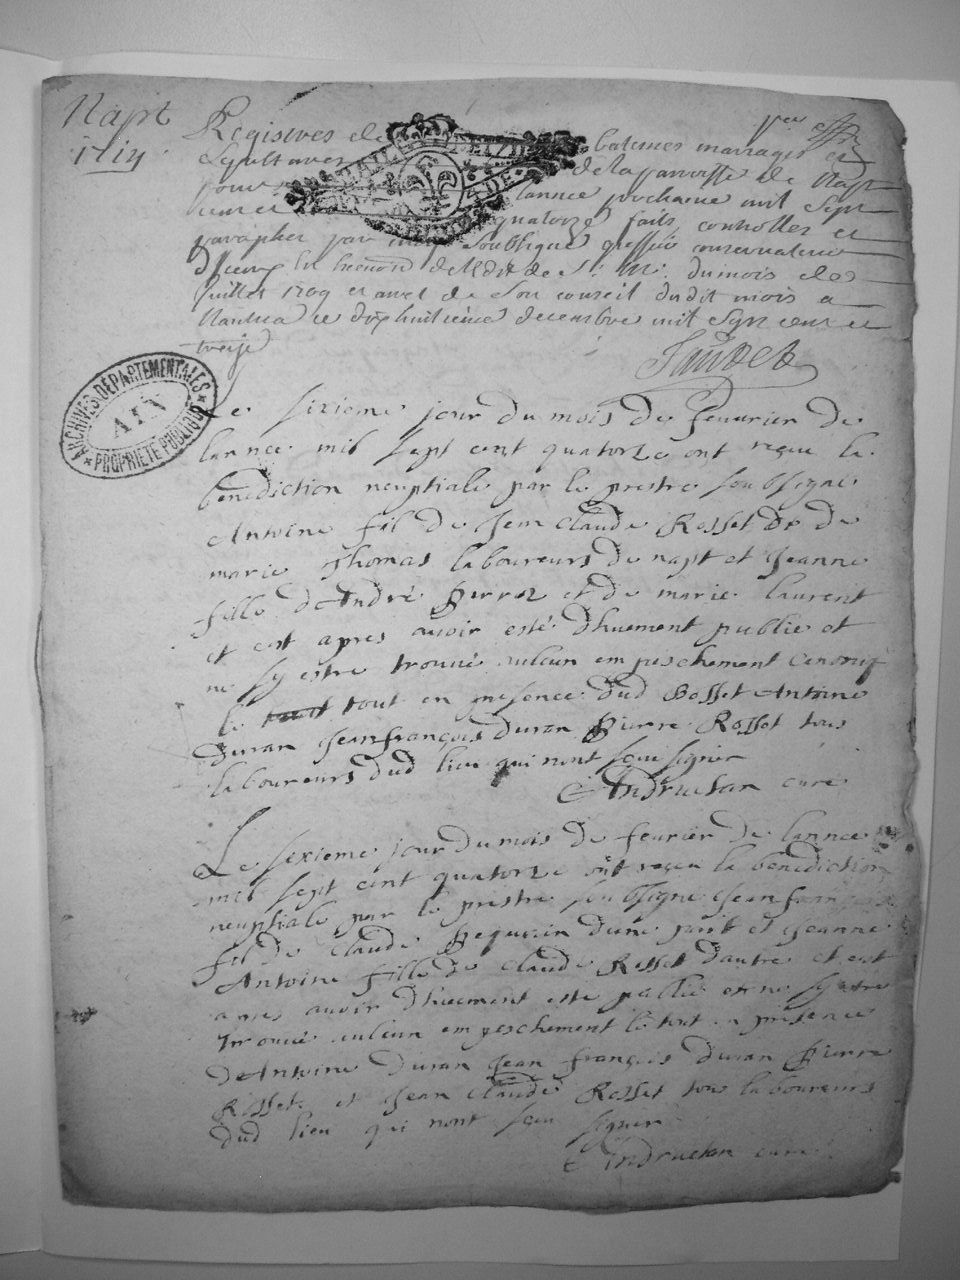 Napt
1714
Registres de batesmes mariages et
Sepultures de la paroisse de Napt
pour lannee prochaine mil Sept
cent quatorze faits cottes et
parapher par soubsigne conservateur
du mois de
Juillet 1709 et arrest de Son conseil dudit mois a
Nantua ce dix huitieme decembre mil Sept cent et
treize
ARCHIVES DÉPARTEMENTALES
AIN
PROPRIÉTÉ PUBLIQUE
Le sixieme jour du mois de feuurier de
lannee mil sept cent quatorze ont reçeu la
benediction neuptiale par le prestre soubsigne
Antoine fil de Jean Claude Rosset et de
marie Thomas laboureurs de napt et Jeanne
fille d'André Perroz et de marie laurent
et cest apres auoir esté dhuement publié et
ne sy estre trouué aulcun empeschement canoniq
le tout en presence dud Rosset Antoine
Duran Jean françois Duran Pierre Rosset tous
laboureurs dud lieu qui nont sçeu signer
curé
Le sixieme jour du mois de feurier de lannee
mil sept cent quatorze ont reçeu la benediction
neuptiale par le prestre soubsigne Jean françois
fil de Claude Pequerin dune part et Jeanne
Antoine fille de Claude Rosset dautre et cest
apres auoir dhuement esté publié et ne sy estre
trouué aulcun empeschement le tout en presence
de Antoine Duran Jean françois Duran Pierre
Rosset et Jean Claude Rosset tous laboureurs
dud lieu qui nont sçeu signer
curé